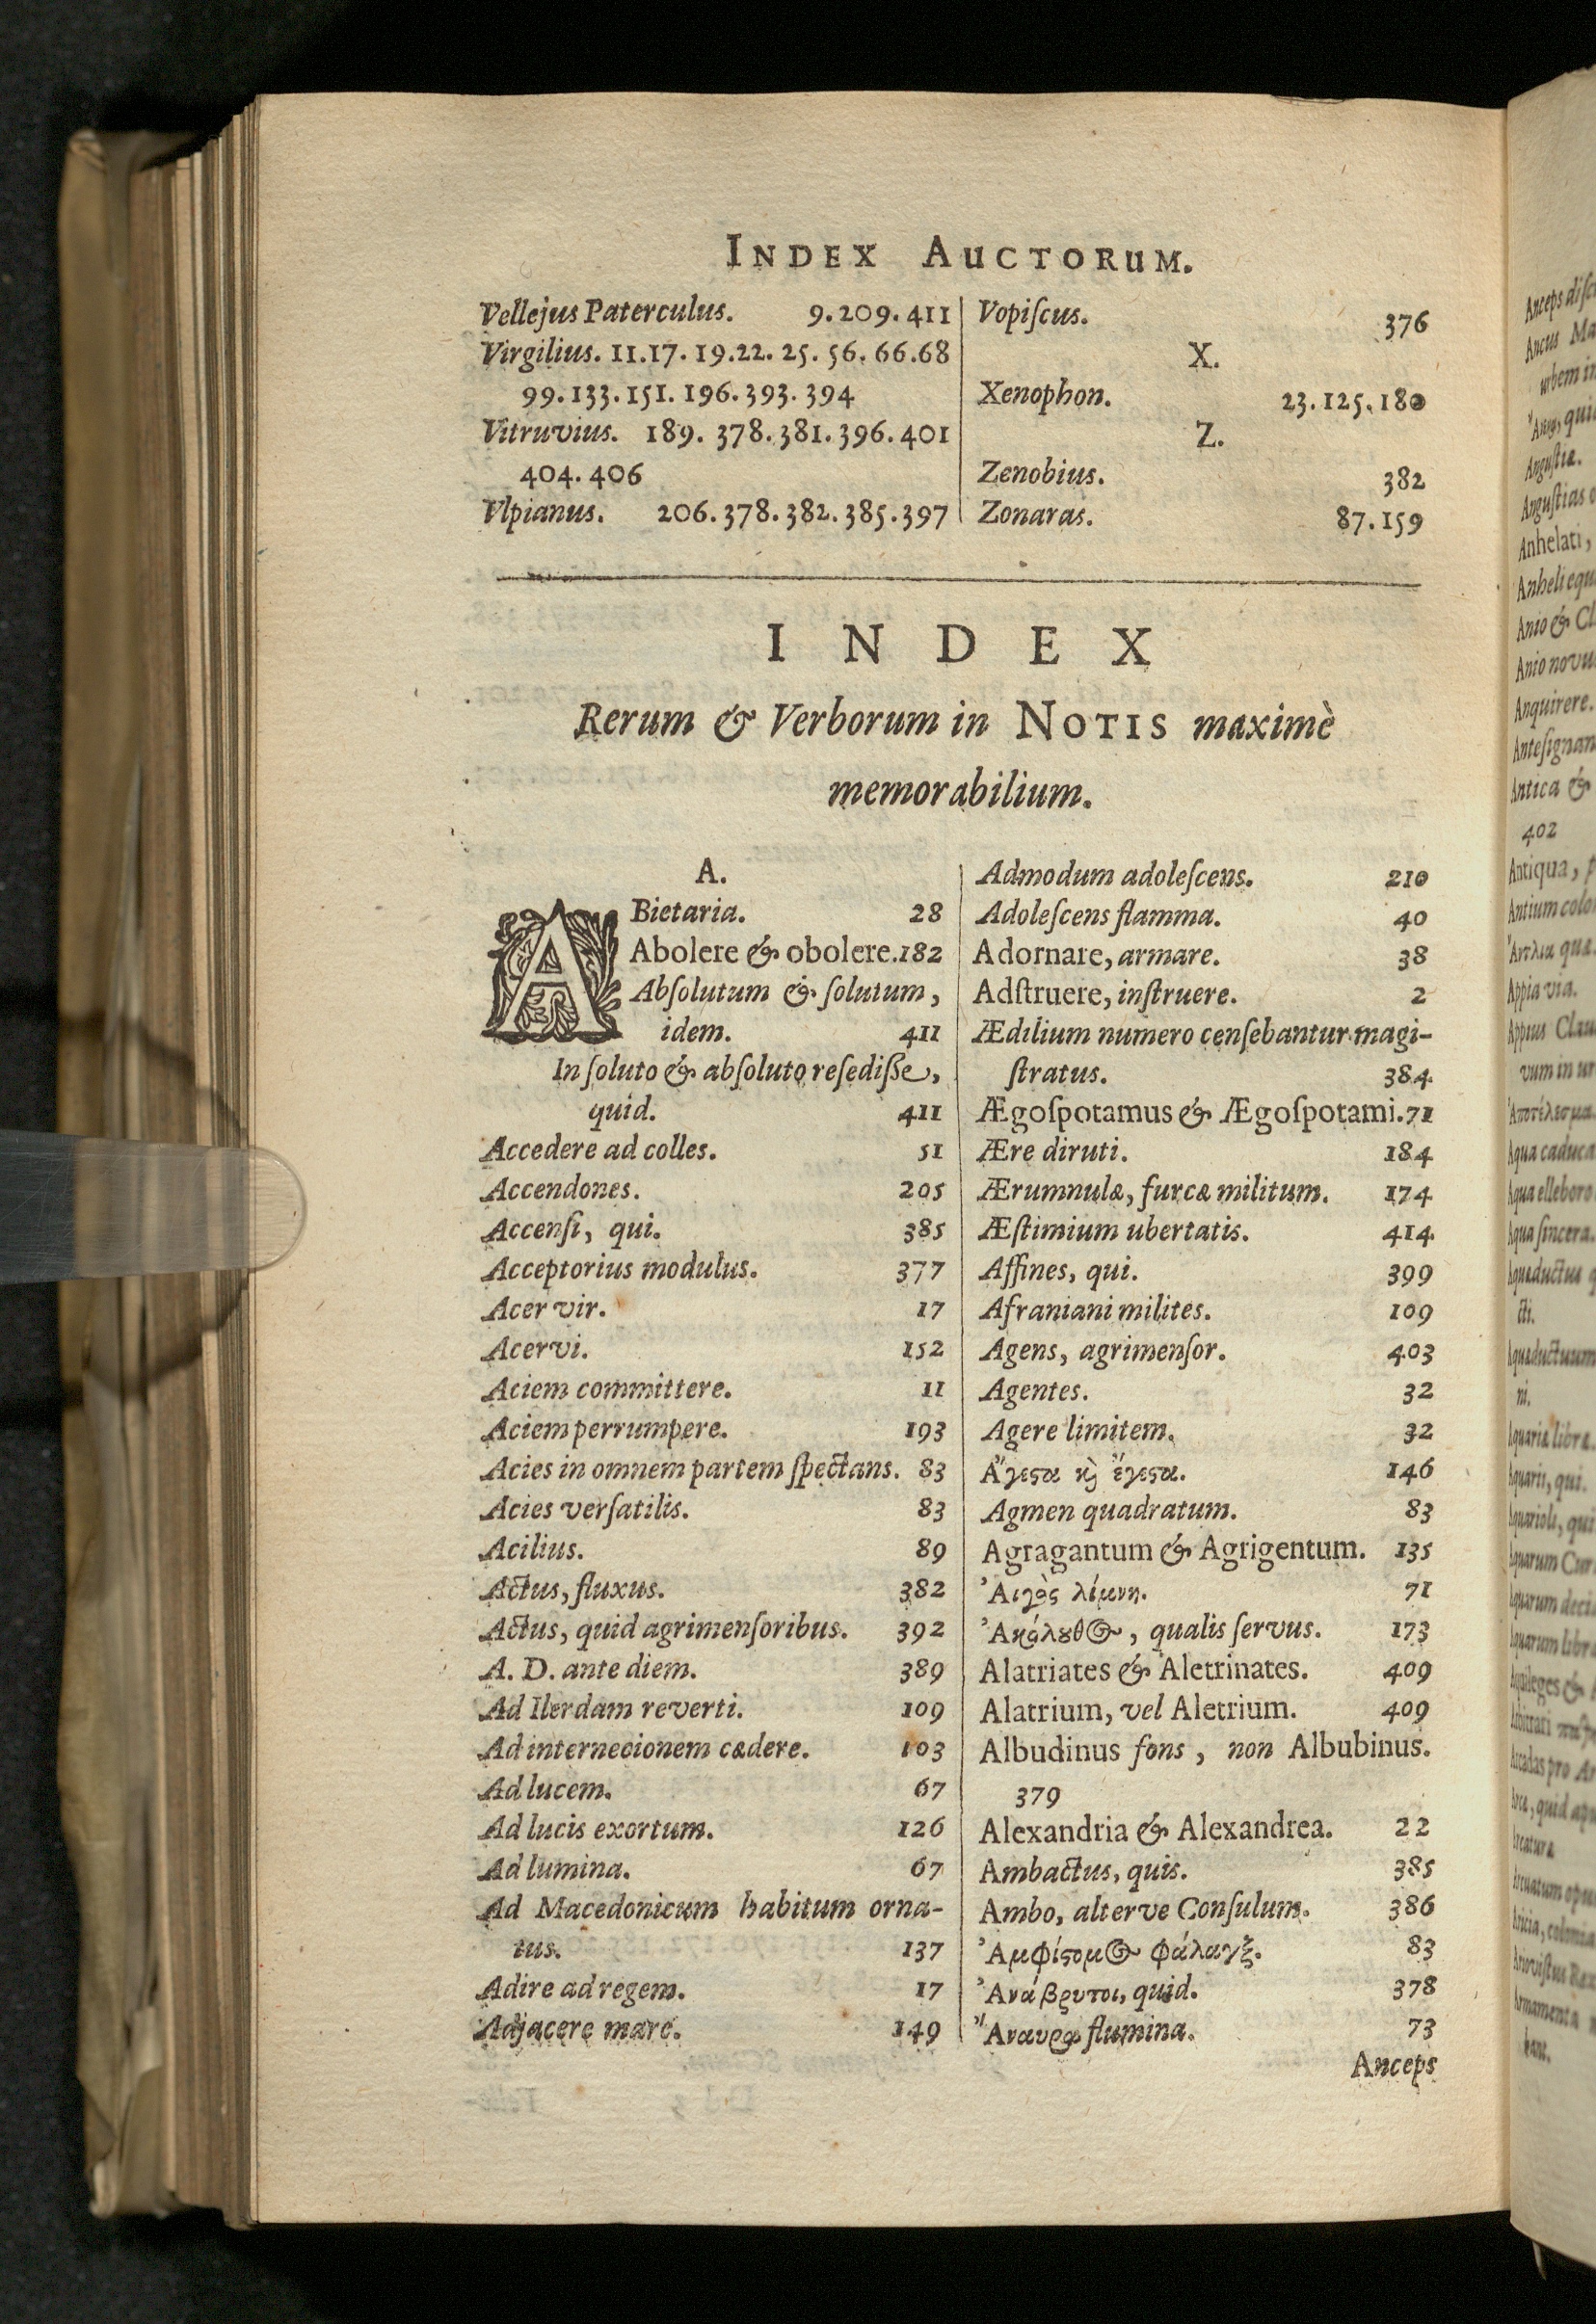 INDEX AUCTORUM.
Vellejus Paterculus. 9.209.411
Virgilius. 11.17.19.22.25.56.66.68
99.133.151.196.393.394
Vitruvius. 189.378.381.396.401
404.406
Vlpianus. 206.378.382.385.397
Vopiſcus. 376
X.
Xenophon. 23.125.180
Z.
Zenobius. 382
Zonaras. 87.159
INDEX
Rerum & Verborum in NOTIS maximè
memorabilium.
A.
ABietaria. 28
Abolere & obolere. 182
Abſolutum & ſolutum,
idem. 411
In ſoluto & abſoluto reſediſſe,
quid. 411
Accedere ad colles. 51
Accendones. 205
Accenſi, qui. 385
Acceptorius modulus. 377
Acer vir. 17
Acervi. 152
Aciem committere. 11
Aciem perrumpere. 193
Acies in omnem partem ſpectans. 83
Acies verſatilis. 83
Acilius. 89
Actus, fluxus. 382
Actus, quid agrimenſoribus. 392
A. D. ante diem. 389
Ad Ilerdam reverti. 109
Ad internecionem cædere. 103
Ad lucem. 67
Ad lucis exortum. 126
Ad lumina. 67
Ad Macedonicum habitum orna-
tus. 137
Adire ad regem. 17
Adjacere mare. 149
Admodum adoleſcens. 210
Adoleſcens flamma. 40
Adornare, armare. 38
Adſtruere, inſtruere. 2
Ædilium numero cenſebantur magi-
ſtratus. 384
Ægoſpotamus & Ægoſpotami. 71
Ære diruti. 184
Ærumnulæ, furcæ militum. 174
Æſtimium ubertatis. 414
Affines, qui. 399
Afraniani milites. 109
Agens, agrimenſor. 403
Agentes. 32
Agere limitem. 32
Ἄγεϛα ϗ̀ ἔγεϛα. 146
Agmen quadratum. 83
Agragantum & Agrigentum. 135
Ἀιγὸς λίμνη. 71
Ἀκόλȣθος, qualis ſervus. 173
Alatriates & Aletrinates. 409
Alatrium, vel Aletrium. 409
Albudinus fons, non Albubinus.
379
Alexandria & Alexandrea. 22
Ambactus, quis. 385
Ambo, alterve Conſulum. 386
Ἀμφίϛομος φάλαγξ. 83
Ἀνάβρυτοι, quid. 378
Ἄναυρα flumina. 73
Anceps
Angustiæ.
Anhelati,
Anquirere.
Antica &
402
Appia via.
Aqua sincera.